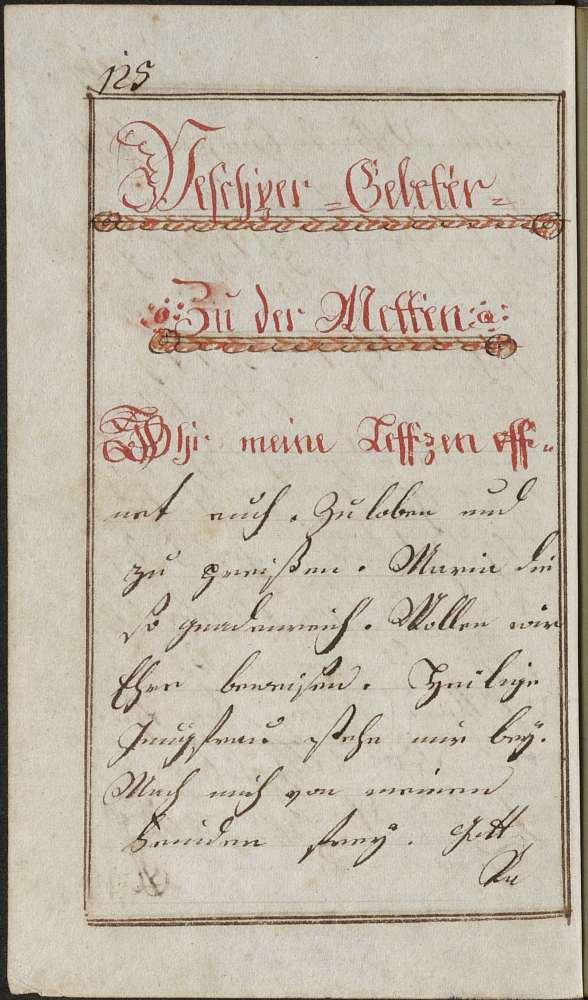 125
Veschper = Gebetér =
Zu der Metten
O Ihr meine Leffzen eff=
net euch. Zu loben und
zu preißen. Maria die
so gnadenreich. Wollen wir
Ehre beweisen. Heilige
Jungfrau stehe mir bey.
Mach mich von meinen
feinden frey. Gott